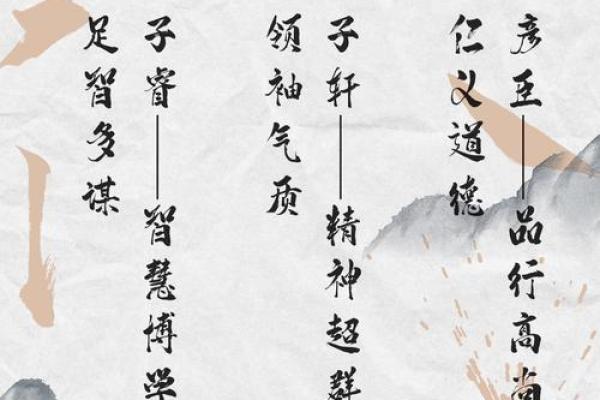 彦臣——品行高尚
仁义道德
子轩——精神超群
领袖气质
子睿——智慧博学
足智多谋